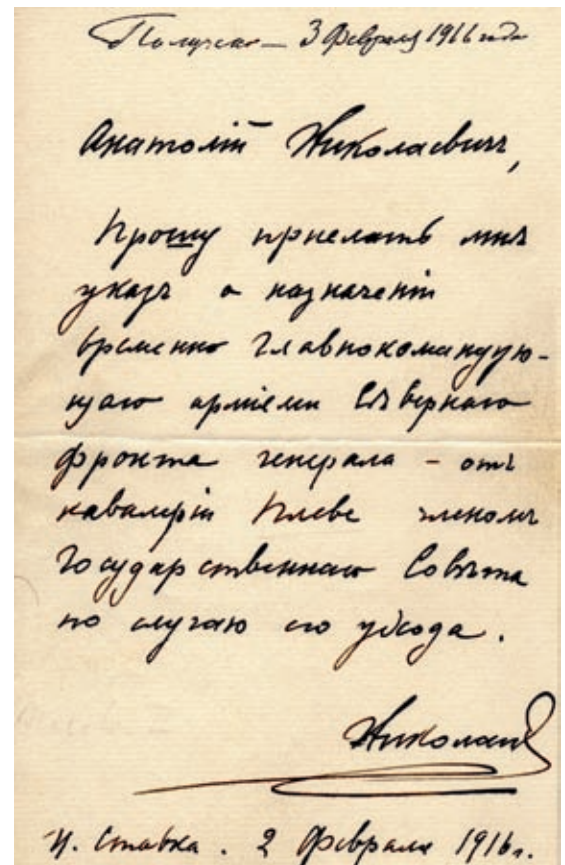 Получено — 3 Февраля 1916 года
Анатолій Николаевичъ,
Прошу прислать мнѣ
указъ о назначеніи
временно главнокомандую-
щаго арміями Сѣвернаго
фронта генерала - отъ
кавалеріи Плеве членомъ
Государственнаго Совѣта
по случаю его ухода.
Николай
Ц. Ставка. 2 Февраля 1916 г.